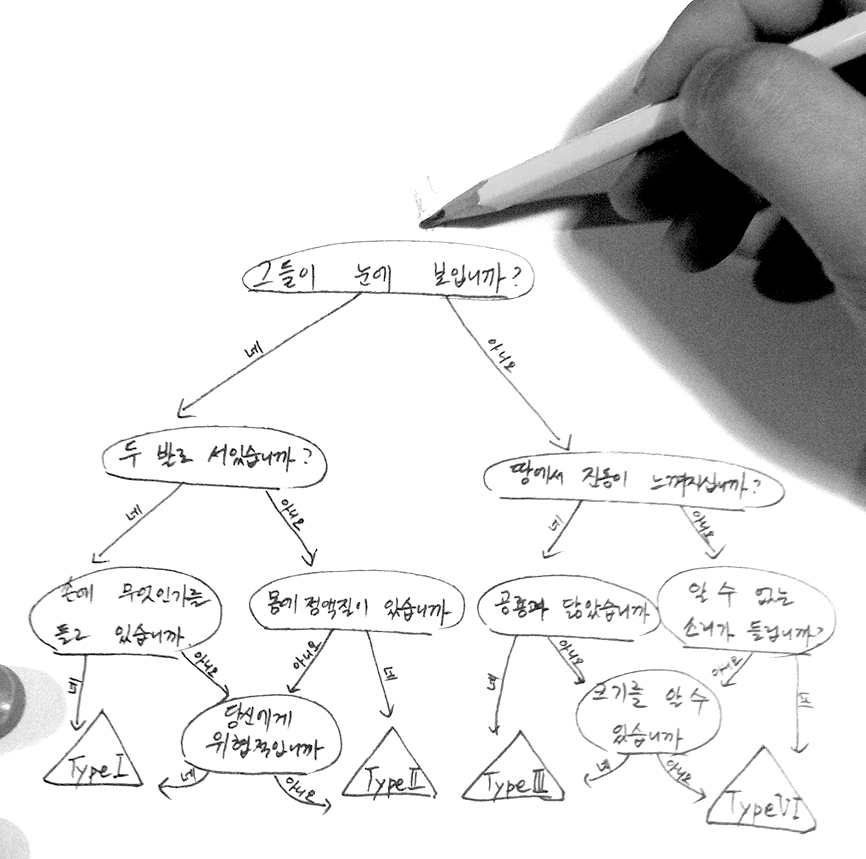 그들이 눈에 보입니까?
네
아니오
두 발로 서있습니까?
땅에서 진동이 느껴지십니까?
네
아니오
네
아니오
손에 무엇인가를
들고 있습니까
몸에 점액질이 있습니까
공룡과 닮았습니까
알 수 없는
소리가 들립니까?
네
아니오
아니오
네
네
아니오
아니오
네
당신에게
위협적입니까
크기를 알 수
있습니까
Type I
네
아니오
Type II
Type III
네
아니오
Type VI